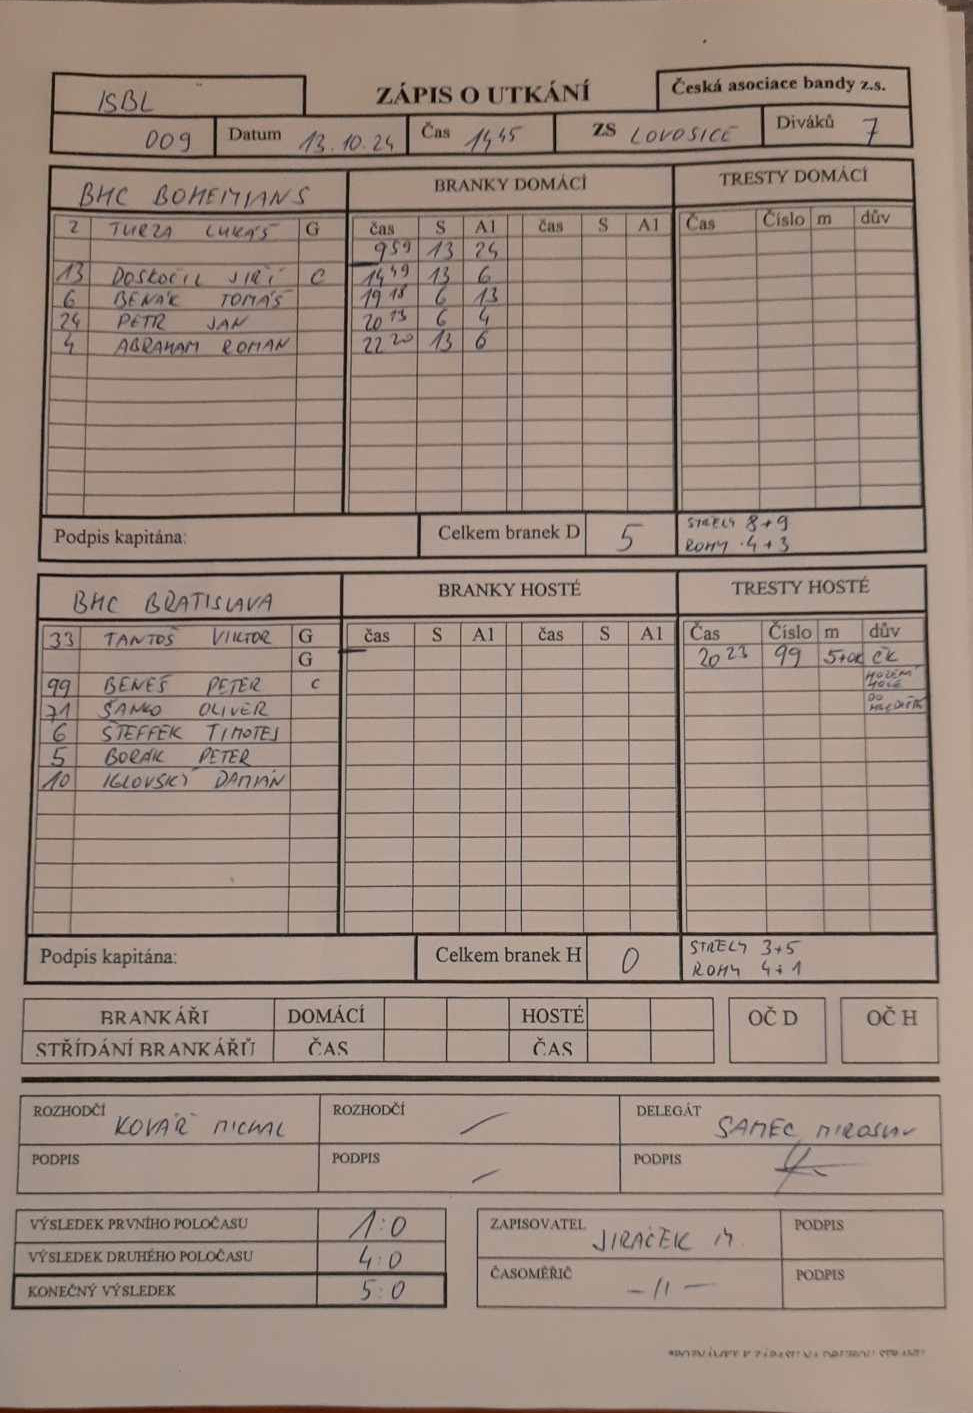 ISBL ZÁPIS O UTKÁNÍ Česká asociace bandy z.s.
009 Datum 13.10.24 Čas 14 45 ZS LOVOSICE Diváků 7
BHC BOHEMIANS BRANKY DOMÁCÍ TRESTY DOMÁCÍ
2 TURZA LUKÁŠ G čas S A1 čas S A1 Čas Číslo m dův
9 59 13 24
13 DOSKOČIL JIŘÍ C 14 49 13 6
6 BENÁK TOMÁŠ 19 18 6 13
24 PETR JAN 20 13 6 4
4 ABRAHAM ROMAN 22 20 13 6
Podpis kapitána: Celkem branek D 5 STŘELY 8+9
ROHY 4+3
BHC BRATISLAVA BRANKY HOSTÉ TRESTY HOSTÉ
33 TANTOŠ VIKTOR G čas S A1 čas S A1 Čas Číslo m dův
G 20 23 99 5+OK ČK
99 BENEŠ PETER C HOZENÍ HOLE
71 ŠANKO OLIVER DO
6 ŠTEFFEK TIMOTEJ
5 BORÁK PETER
10 IGLOVSKÝ DAMIÁN
Podpis kapitána: Celkem branek H 0 STRELY 3+5
ROHY 4+1
BRANKÁŘI DOMÁCÍ HOSTÉ OČ D OČ H
STŘÍDÁNÍ BRANKÁŘŮ ČAS ČAS
ROZHODČÍ KOVÁŘ MICHAL ROZHODČÍ / DELEGÁT SAMEC MIROSLAV
PODPIS PODPIS / PODPIS
VÝSLEDEK PRVNÍHO POLOČASU 1:0 ZAPISOVATEL JIRÁČEK M. PODPIS
VÝSLEDEK DRUHÉHO POLOČASU 4:0
KONEČNÝ VÝSLEDEK 5:0 ČASOMĚŘIČ -11- PODPIS